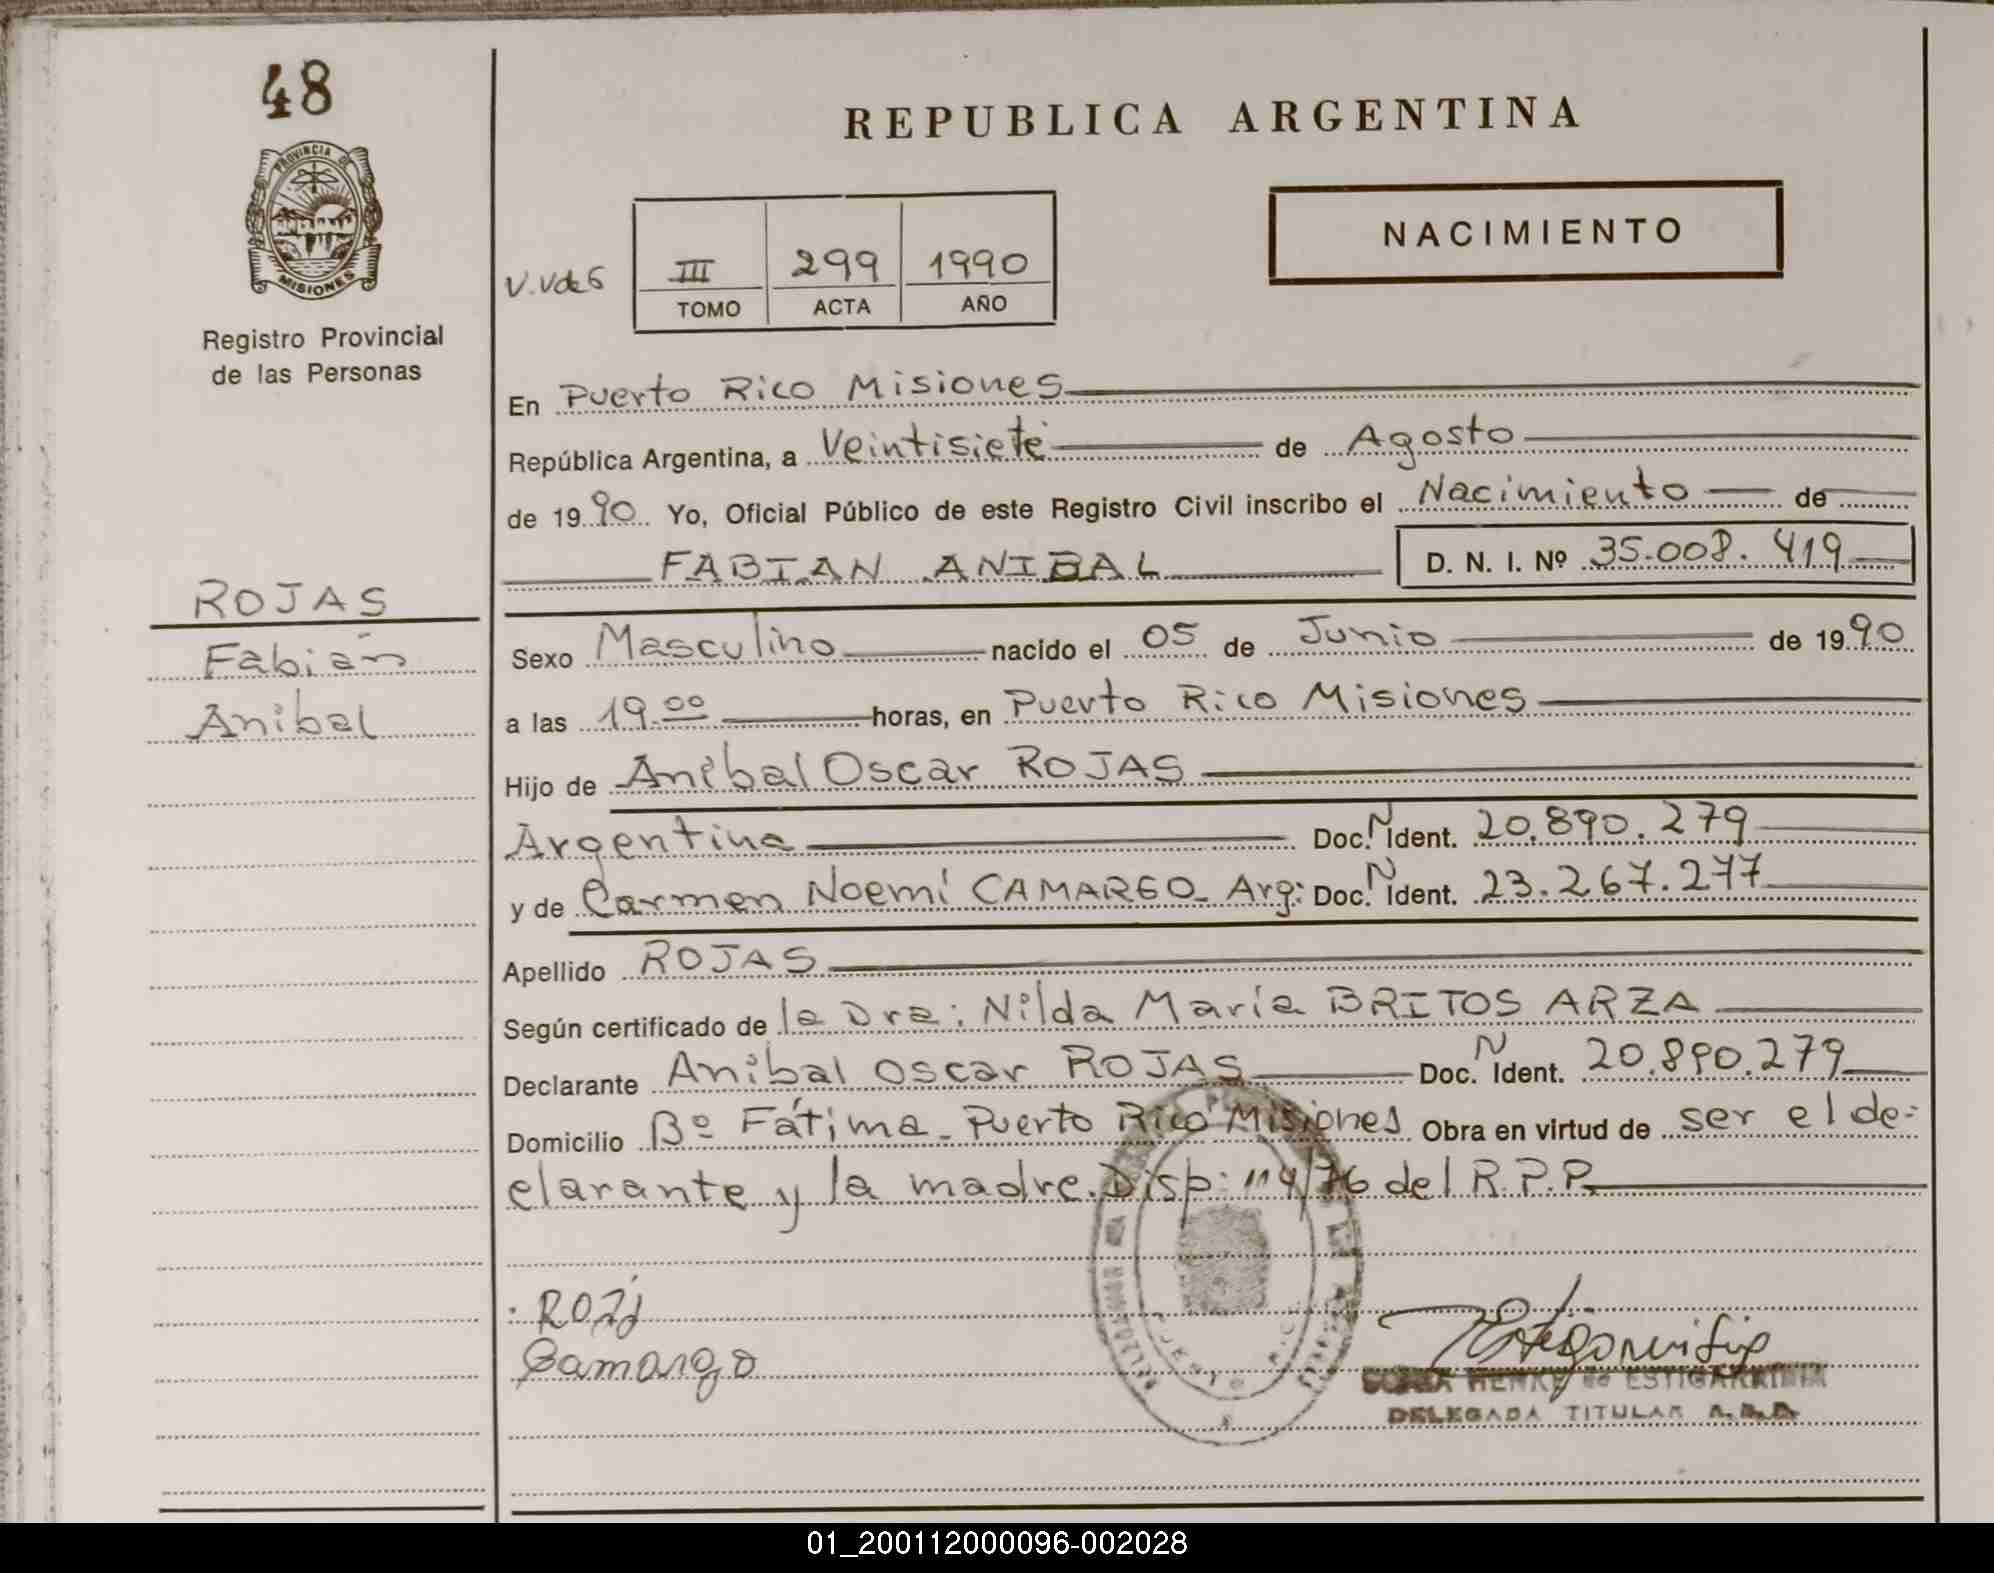 48
PROVINCIA DE
MISIONES
Registro Provincial
de las Personas
ROJAS
Fabián
Anibal
REPUBLICA ARGENTINA
NACIMIENTO
III 299 1990
TOMO ACTA AÑO
En Puerto Rico Misiones
República Argentina, a Veintisiete de Agosto
de 1990 Yo, Oficial Público de este Registro Civil inscribo el Nacimiento de
FABIAN ANIBAL D. N. I. Nº 35.008.419
Sexo Masculino nacido el 05 de Junio de 1990
a las 19.00 horas, en Puerto Rico Misiones
Hijo de Anibal Oscar ROJAS
Argentina Doc. N Ident. 20.890.279
y de Carmen Noemí CAMARGO_ Arg: Doc. N Ident. 23.267.277
Apellido ROJAS
Según certificado de la Dra: Nilda María BRITOS ARZA
Declarante Anibal Oscar ROJAS Doc. N Ident. 20.890.279
Domicilio Bº Fátima_ Puerto Rico Misiones Obra en virtud de ser el de-
clarante y la madre. Disp: 114/76 del R.P.P.
Camargo
HENKE de ESTIGARRIBIA
DELEGADA TITULAR
01_200112000096-002028